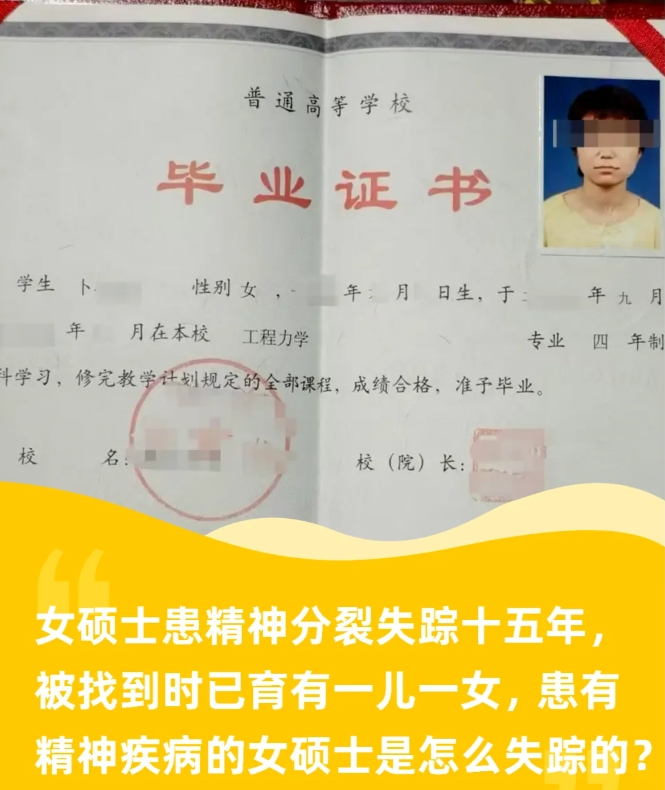 普通高等学校
毕业证书
学生 卜 性别 女 , 年 月 日生，于 年 九 月
年 月在本校 工程力学 专业 四 年制
科学习，修完教学计划规定的全部课程，成绩合格，准予毕业。
校 名： 校（院）长：
女硕士患精神分裂失踪十五年，
被找到时已育有一儿一女，患有
精神疾病的女硕士是怎么失踪的？